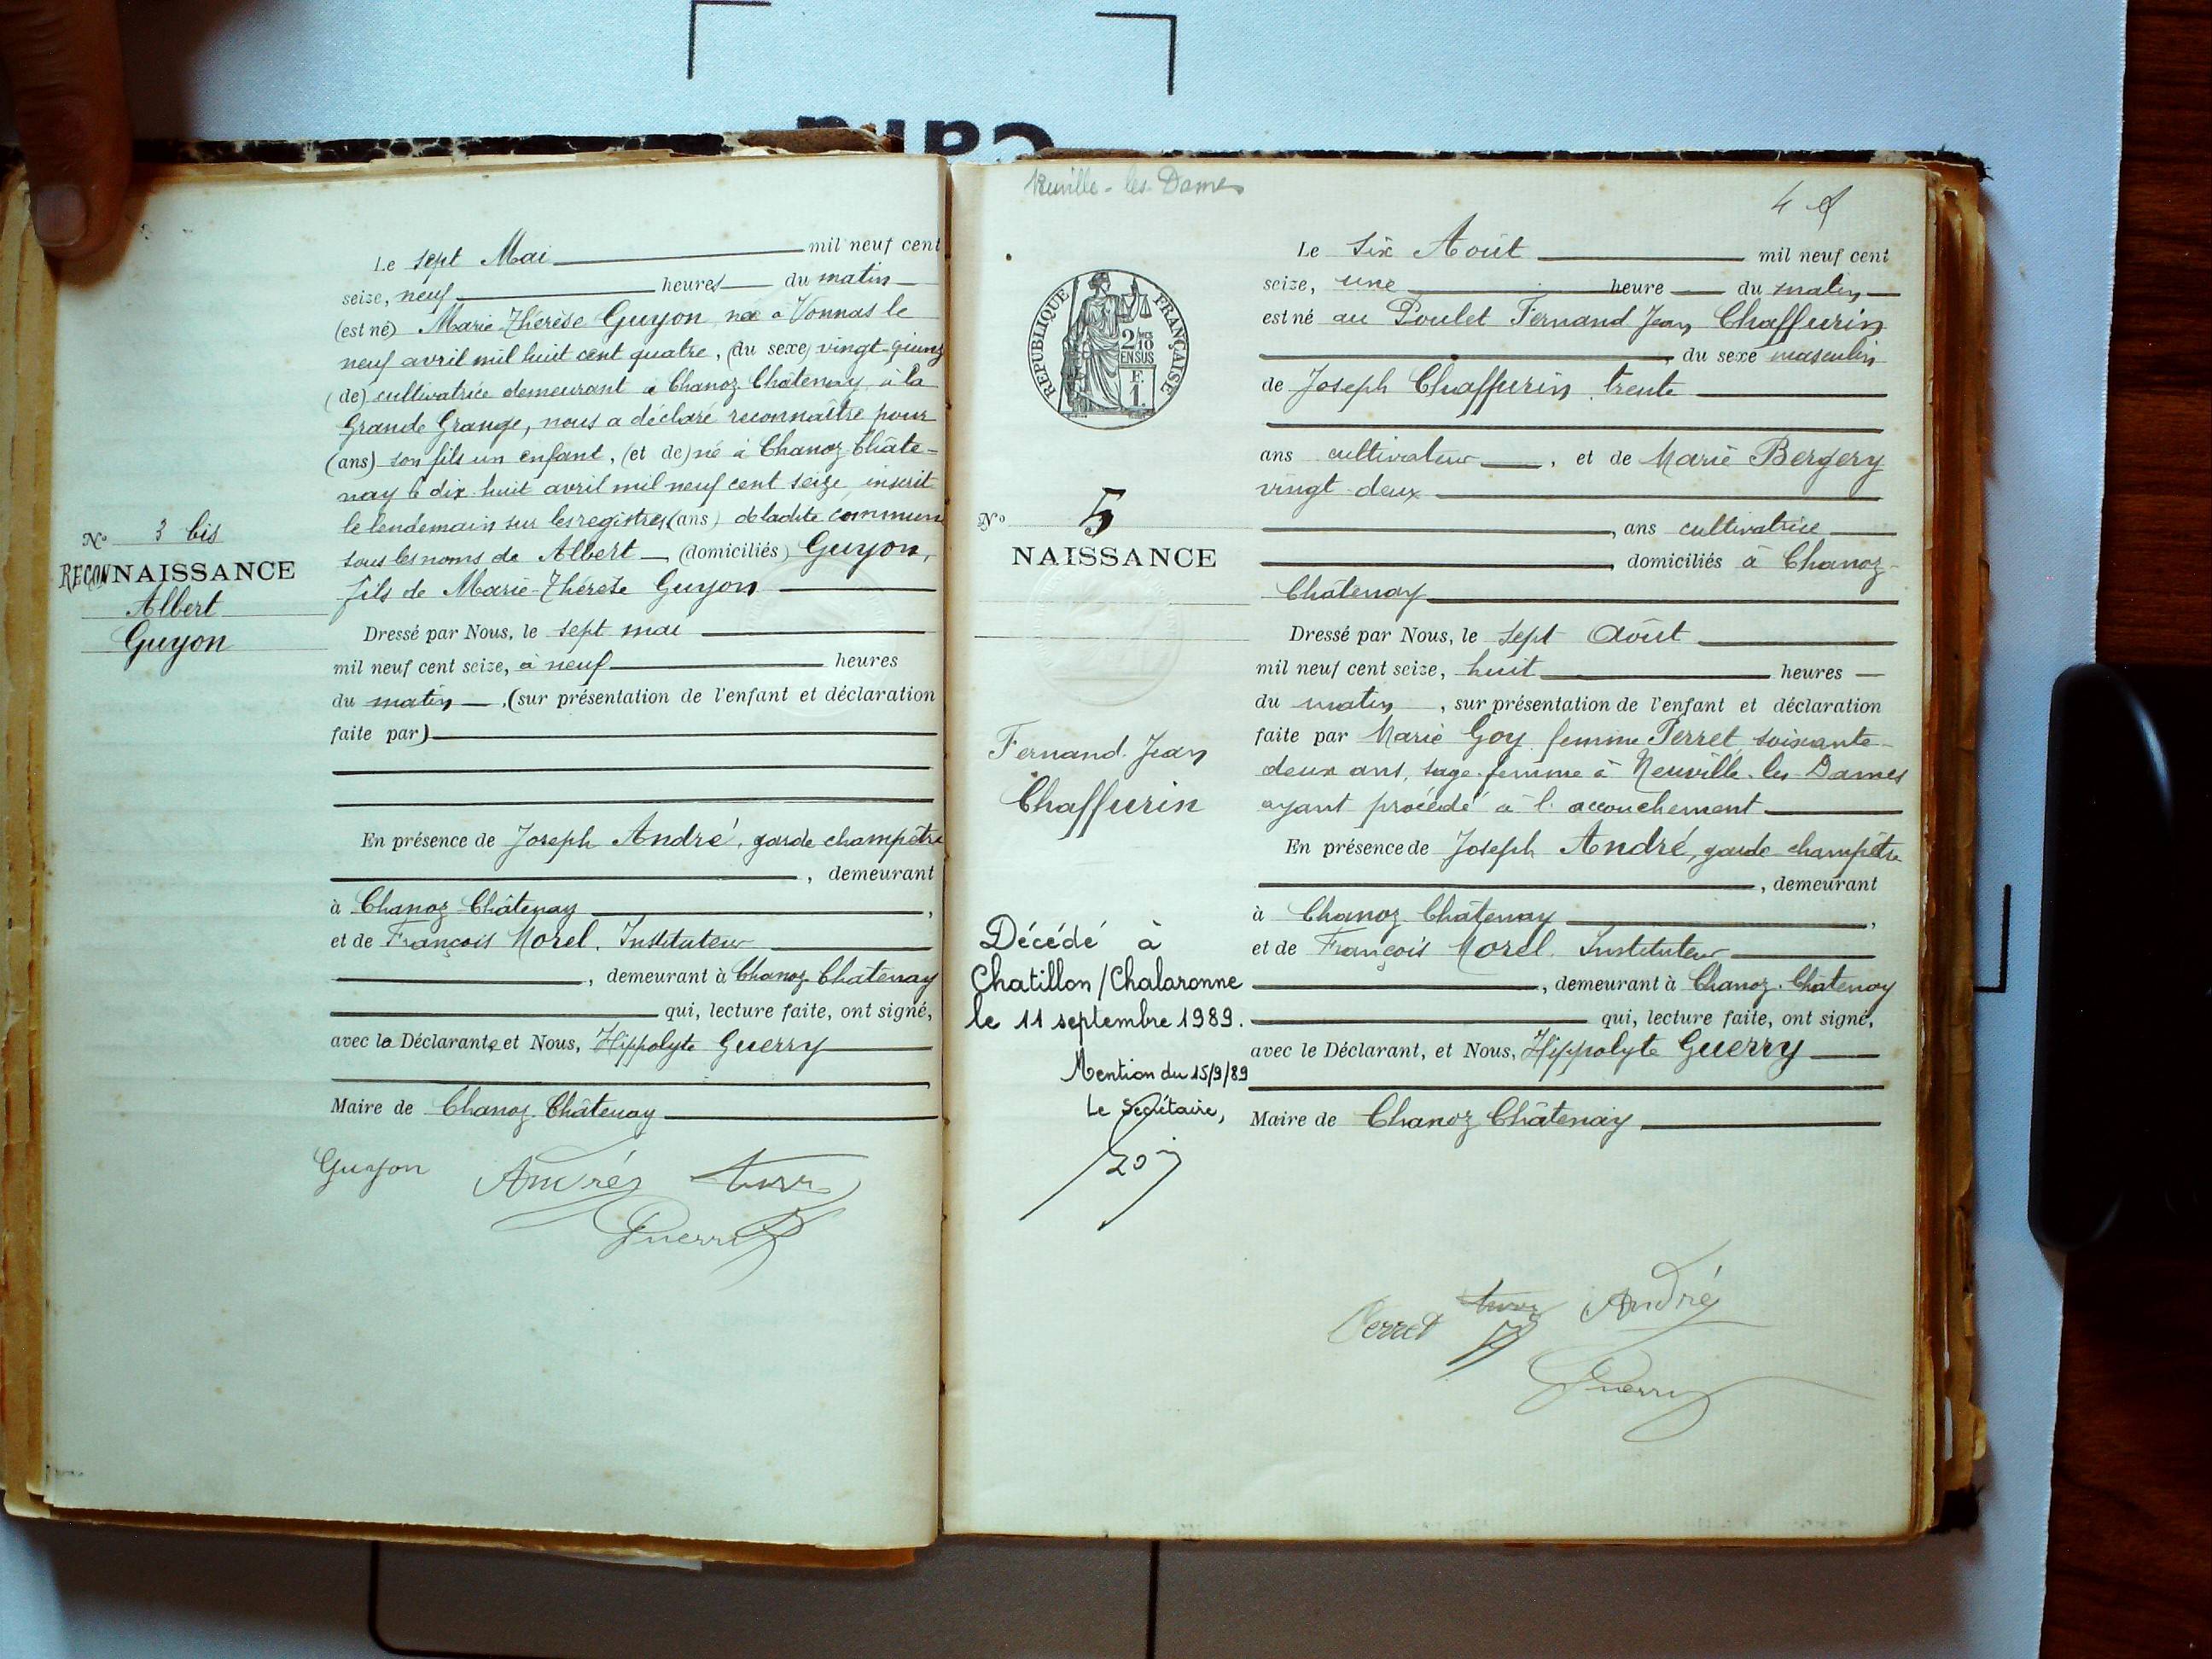 Cara
Le sept Mai mil neuf cent
seize, neuf heures du matin
(est né) Marie-Thérèse Guyon née à Vonnas le
neuf avril mil huit cent quatre, (du sexe) vingt-quinz
(de) cultivatrice demeurant à Chanoz-Châtenay, à la
Grande Grange, nous a déclaré reconnaître pour
(ans) son fils un enfant, (et de) né à Chanoz-Châte-
nay le dix-huit avril mil neuf cent seize, inscrit
le lendemain sur les registres (ans) de ladite commune
sous les noms de Albert (domiciliés) Guyon,
fils de Marie-Thérèse Guyon
No 3 bis
RECONNAISSANCE
Albert
Guyon
Dressé par Nous, le sept mai
mil neuf cent seize, à neuf heures
du matin, (sur présentation de l'enfant et déclaration
faite par)
En présence de Joseph André, garde champêtre
, demeurant
à Chanoz-Châtenay,
et de François Morel, Instituteur
, demeurant à Chanoz-Châtenay
qui, lecture faite, ont signé,
avec la Déclarante et Nous, Hippolyte Guerry
Maire de Chanoz-Châtenay
Guyon André
Guerry
Neuville-les-Dames
4
RÉPUBLIQUE FRANÇAISE
2/10
EN SUS
F.
1.
Le Six Août mil neuf cent
seize, une heure du matin
est né au Poulet Fernand Jean Chaffurin
, du sexe masculin
de Joseph Chaffurin, trente
ans cultivateur, et de Marie Bergery
vingt-deux
, ans cultivatrice
domiciliés à Chanoz-
Châtenay
No 5
NAISSANCE
Fernand Jean
Chaffurin
Dressé par Nous, le sept Août
mil neuf cent seize, huit heures
du matin, sur présentation de l'enfant et déclaration
faite par Marie Goy femme Perret, soixante-
deux ans, sage-femme à Neuville-les-Dames
ayant procédé à l'accouchement
En présence de Joseph André, garde-champêtre
, demeurant
à Chanoz-Châtenay,
et de François Morel, Instituteur
, demeurant à Chanoz-Châtenay
qui, lecture faite, ont signé,
avec le Déclarant, et Nous, Hippolyte Guerry
Maire de Chanoz-Châtenay
Décédé à
Chatillon/Chalaronne
le 11 septembre 1989.
Mention du 15/9/89
Le Secrétaire,
Perret André
Guerry